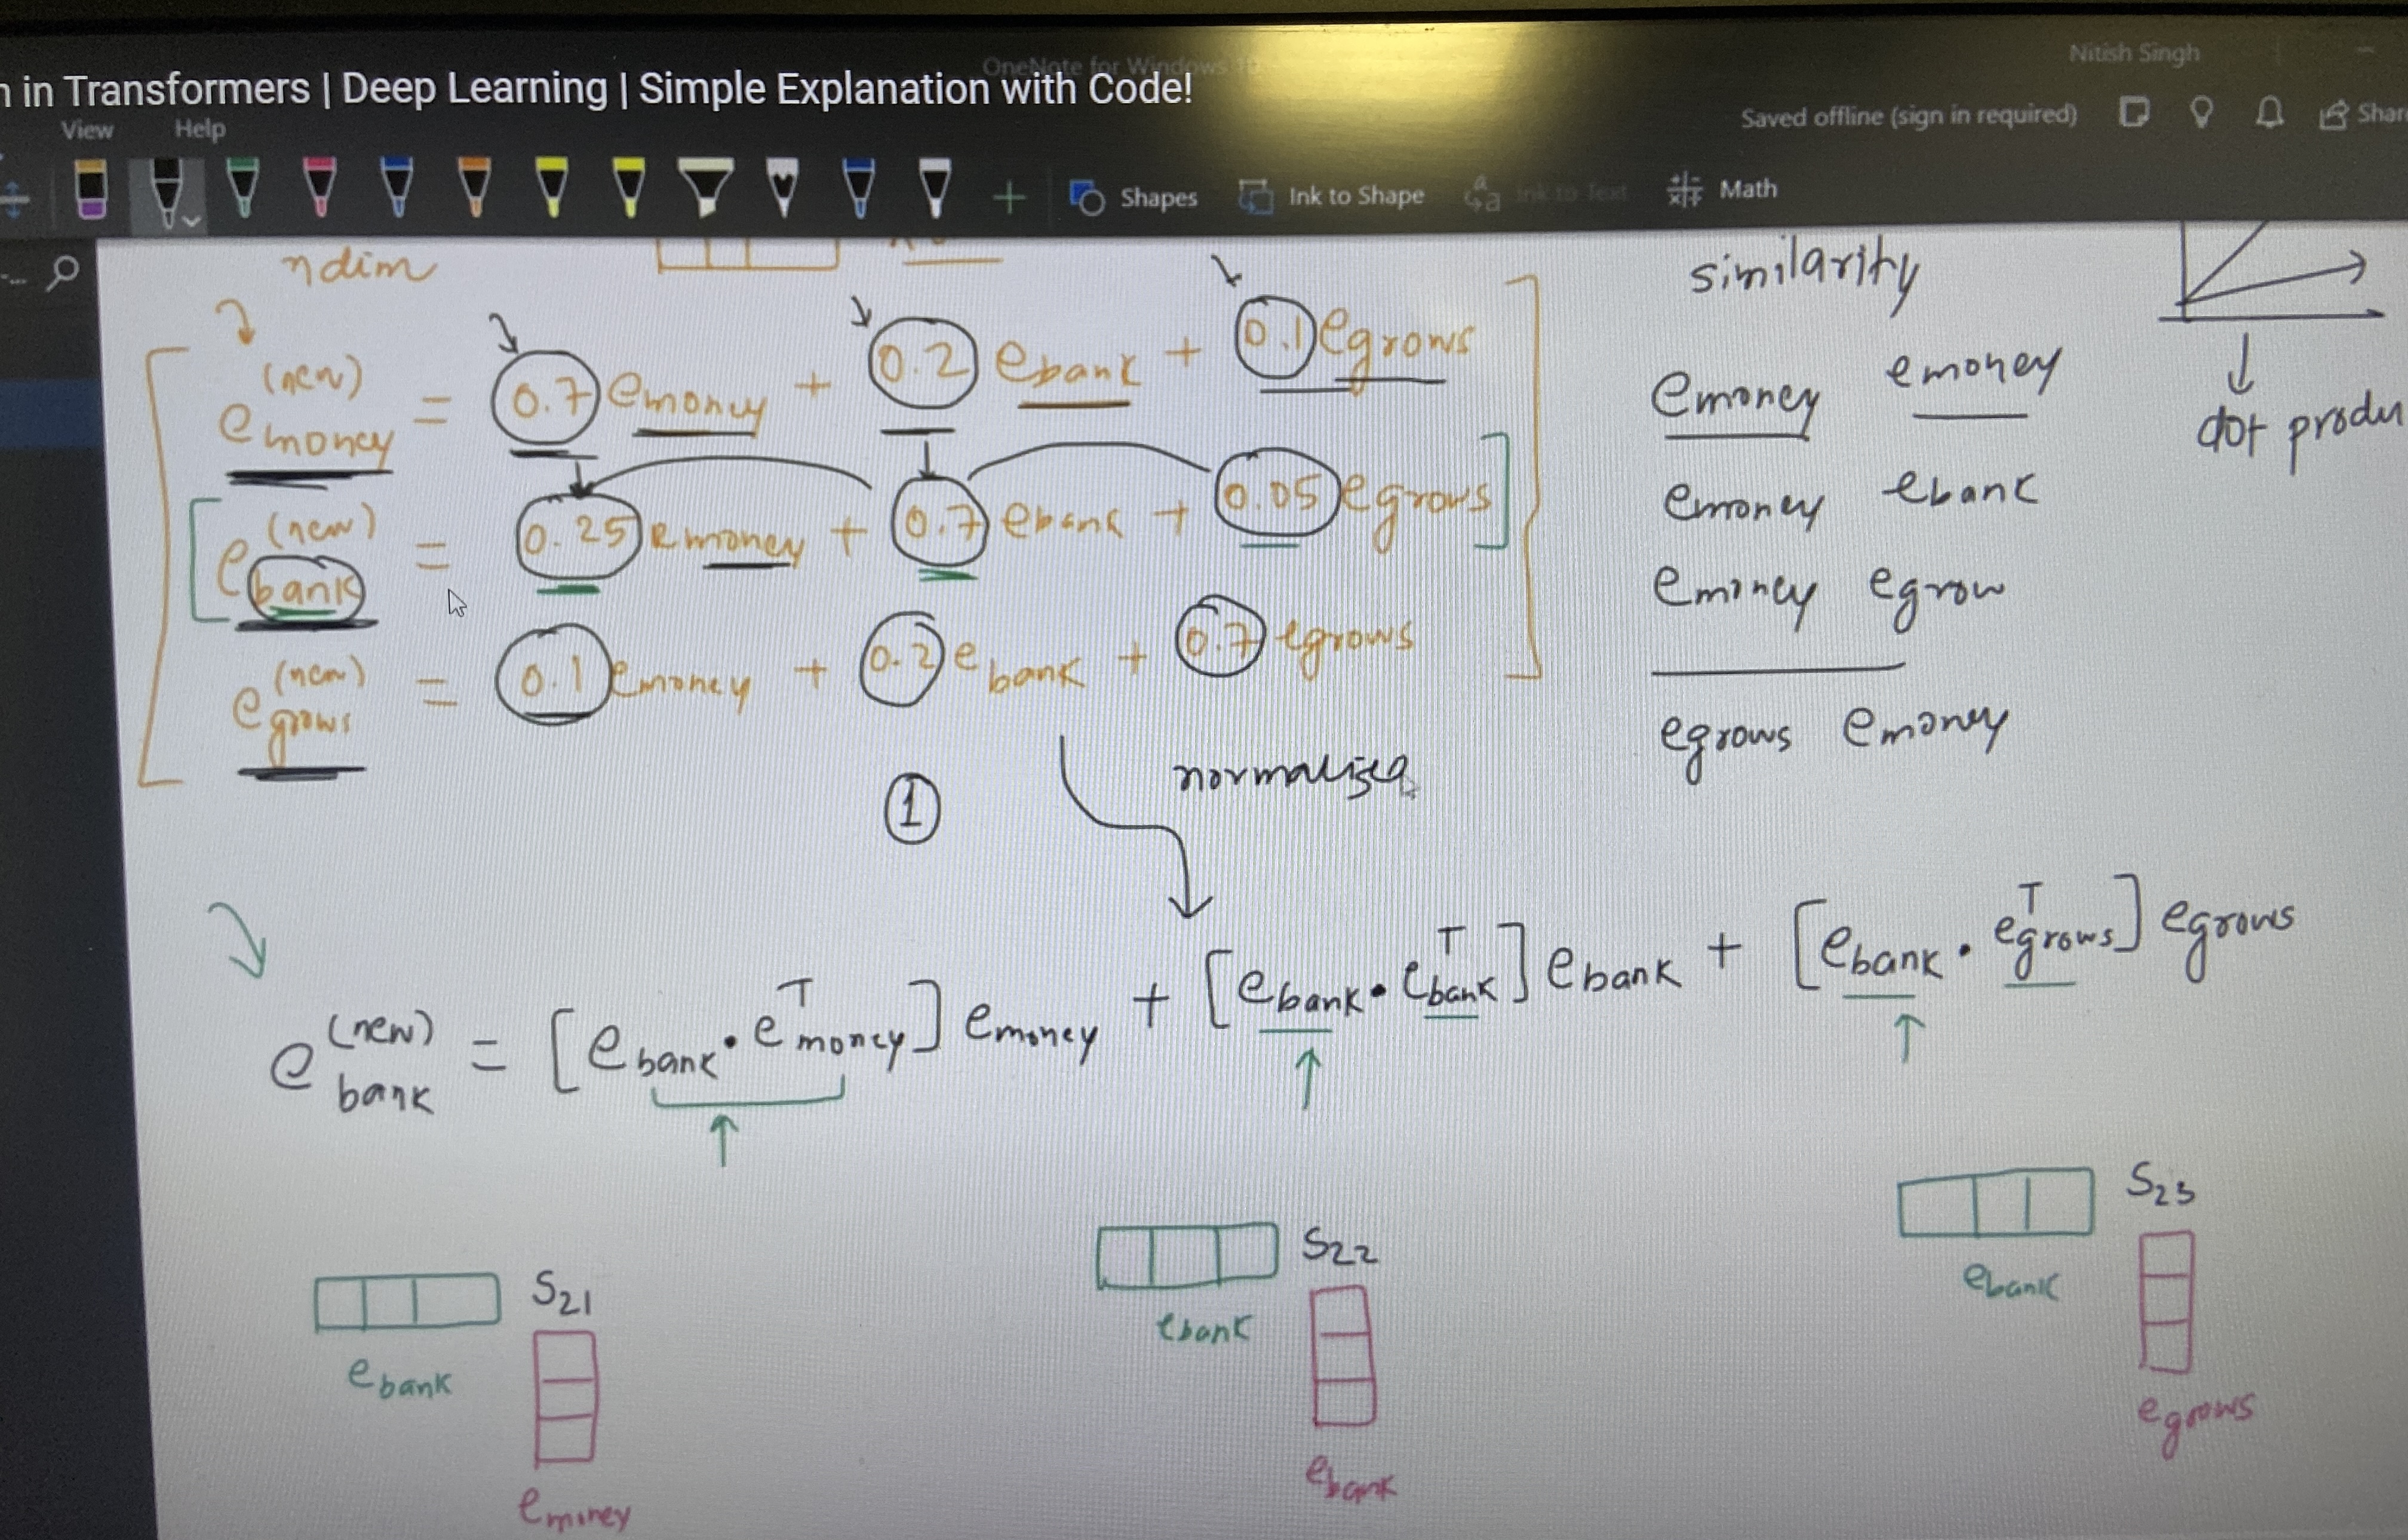 OneNote for Windows 10
Nitish Singh
n in Transformers | Deep Learning | Simple Explanation with Code!
Saved offline (sign in required)
Shar
View Help
Shapes Ink to Shape Ink to Text Math
ndim
e money (new) = 0.7 e money + 0.2 e bank + 0.1 e grows
e bank (new) = 0.25 e money + 0.7 e bank + 0.05 e grows
e grows (new) = 0.1 e money + 0.2 e bank + 0.7 e grows
1
normalised
similarity
e money e money
e money e bank
e money e grow
e grows e money
dot produ
e bank (new) = [e bank . e money T] e money + [e bank . e bank T] e bank + [e bank . e grows T] e grows
S21
e bank
e money
S22
e bank
e bank
S23
e bank
e grows